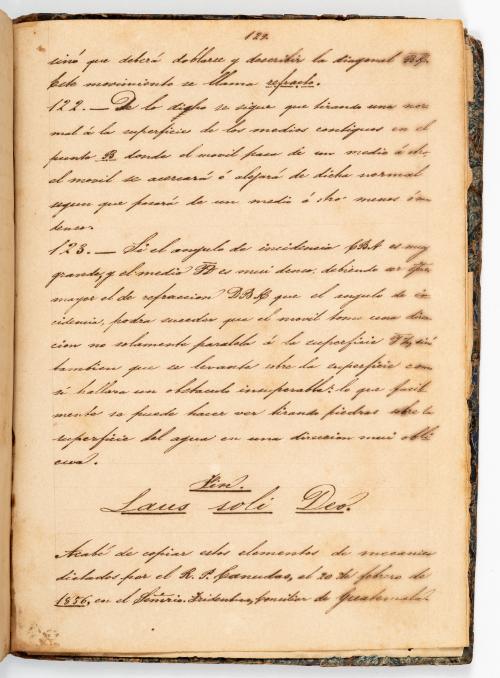 122.
sinó que deberá doblarse y describir la diagonal
Este movimiento se llama refracto.
122. — De lo dicho se sigue que tirando una nor
mal á la superficie de los medios contiguos en el
punto B donde el movil pasa de un medio á otro,
el movil se acercará ó alejará de dicha normal
segun que pasará de un medio á otro menos ó m
denso.
123. — Si el angulo de incidencia CBA es muy
grande, y el medio es mui denso, debiendo ser
mayor el de refraccion DBK que el angulo de in
cidencia, podra suceder que el movil tome una direc
cion no solamente paralela á la superficie sinó
tambien que se levante sobre la superficie com
si hallara un obstaculo insuperable: lo que facil
mente se puede hacer ver tirando piedras sobre la
superficie del agua en una direccion mui obli
cua.
Fin.
Laus soli Deo.
Acabé de copiar estos elementos de mecanica
dictados por el R. P. Canudas, el 20 de febrero de
1856, en el Semirio. Tridentino, Conciliar de Guatemala.